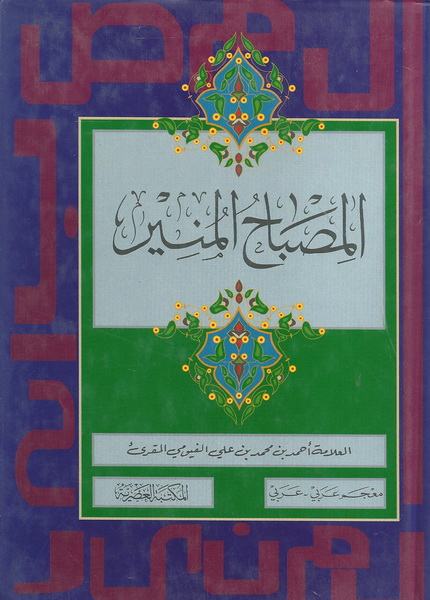 المِصْبَاحُ المُنِير
العلامة أحمد بن محمد بن علي الفيومي المقرئ
معجم عربي - عربي
المكتبة العصرية